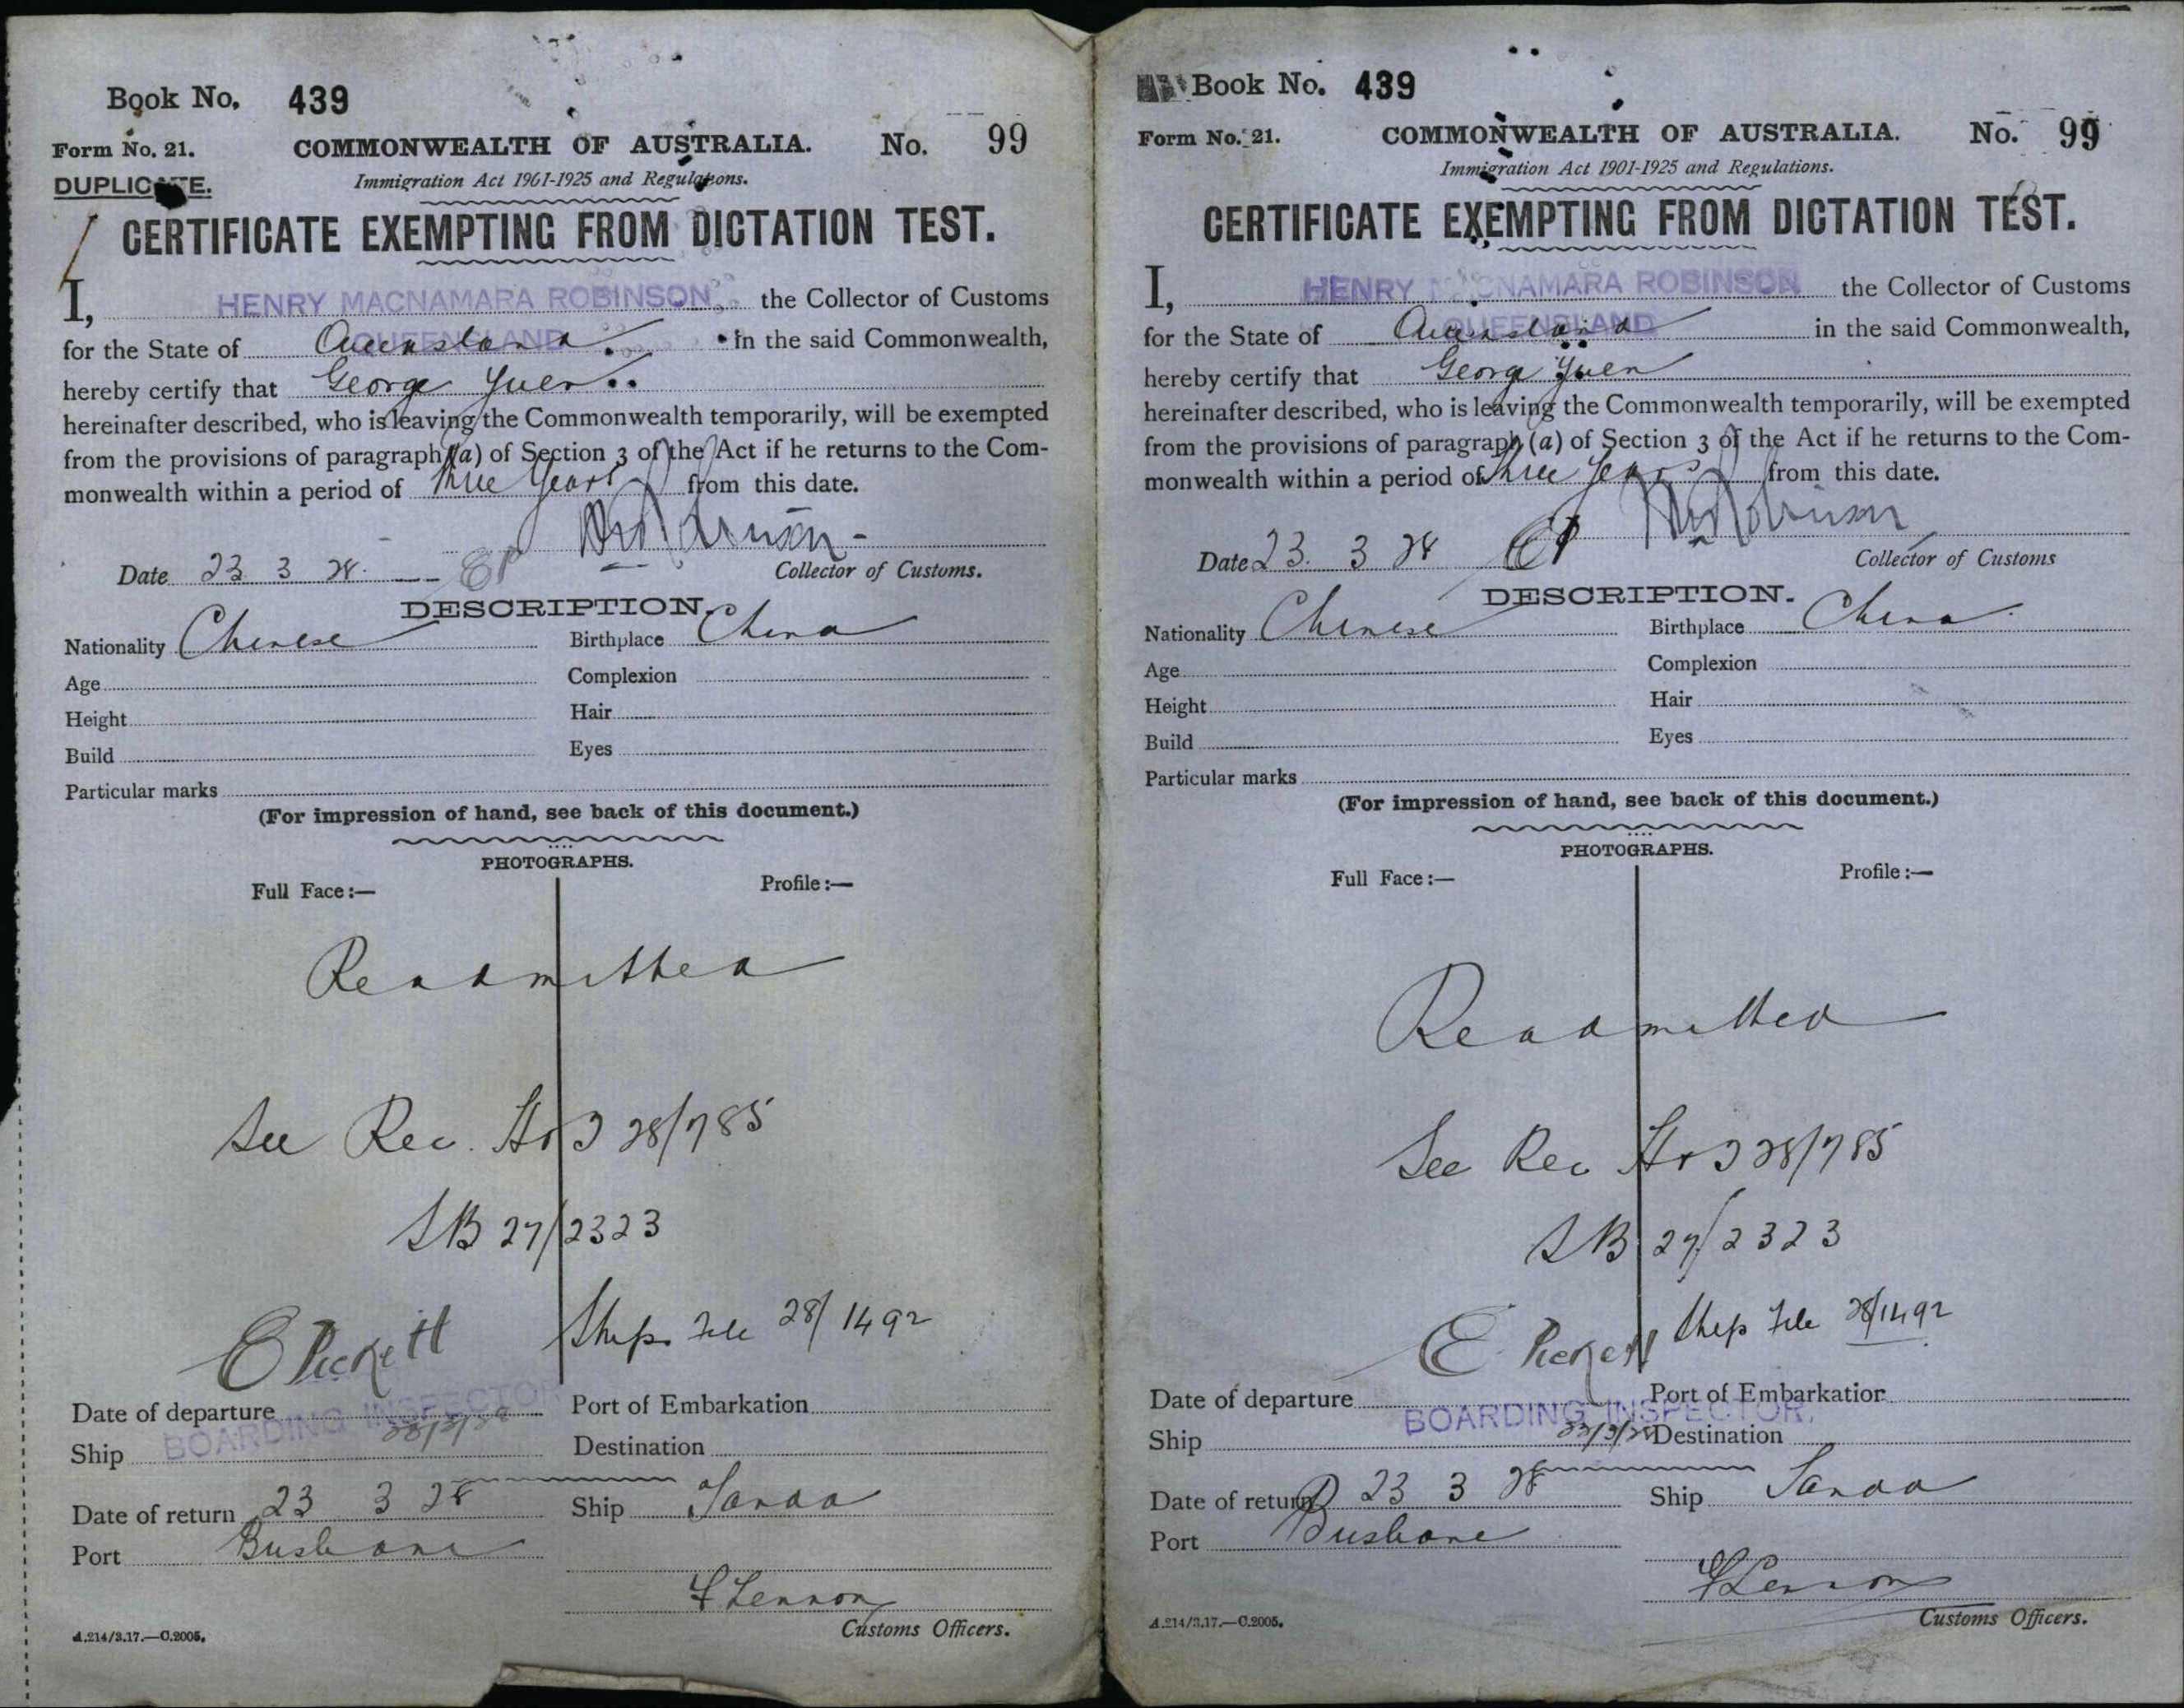 Book No. 439
Form No. 21. COMMONWEALTH OF AUSTRALIA. No. 99
DUPLICATE. Immigration Act 1901-1925 and Regulations.
CERTIFICATE EXEMPTING FROM DICTATION TEST.
I, HENRY MACNAMARA ROBINSON the Collector of Customs
QUEENSLAND
for the State of Queensland in the said Commonwealth,
hereby certify that George Yuen
hereinafter described, who is leaving the Commonwealth temporarily, will be exempted
from the provisions of paragraph (a) of Section 3 of the Act if he returns to the Com-
monwealth within a period of three years from this date.
HMRobinson
Date 23 3 28. EP Collector of Customs.
DESCRIPTION.
Nationality Chinese Birthplace China
Age Complexion
Height Hair
Build Eyes
Particular marks
(For impression of hand, see back of this document.)
PHOTOGRAPHS.
Full Face:— Profile:—
Readmitted
See Rec. 28/785
SB 27/2323
E Pickett Ships File 28/1492
Date of departure Port of Embarkation
BOARDING INSPECTOR
23/3/28
Ship Destination
Date of return 23 3 28 Ship
Port Brisbane
F Lennon
A.214/3.17.—C.2005. Customs Officers.
Book No. 439
Form No. 21. COMMONWEALTH OF AUSTRALIA. No. 99
Immigration Act 1901-1925 and Regulations.
CERTIFICATE EXEMPTING FROM DICTATION TEST.
I, HENRY MACNAMARA ROBINSON the Collector of Customs
QUEENSLAND
for the State of Queensland in the said Commonwealth,
hereby certify that George Yuen
hereinafter described, who is leaving the Commonwealth temporarily, will be exempted
from the provisions of paragraph (a) of Section 3 of the Act if he returns to the Com-
monwealth within a period of three years from this date.
HMRobinson
Date 23. 3 28 EP Collector of Customs
DESCRIPTION.
Nationality Chinese Birthplace China
Age Complexion
Height Hair
Build Eyes
Particular marks
(For impression of hand, see back of this document.)
PHOTOGRAPHS.
Full Face:— Profile:—
Readmitted
See Rec 28/785
SB 27/2323
E. Pickett Ships File 28/1492
Date of departure Port of Embarkation
BOARDING INSPECTOR.
23/3/28
Ship Destination
Date of return 23 3 28 Ship
Port Brisbane
F Lennon
A.214/3.17.—C.2005. Customs Officers.